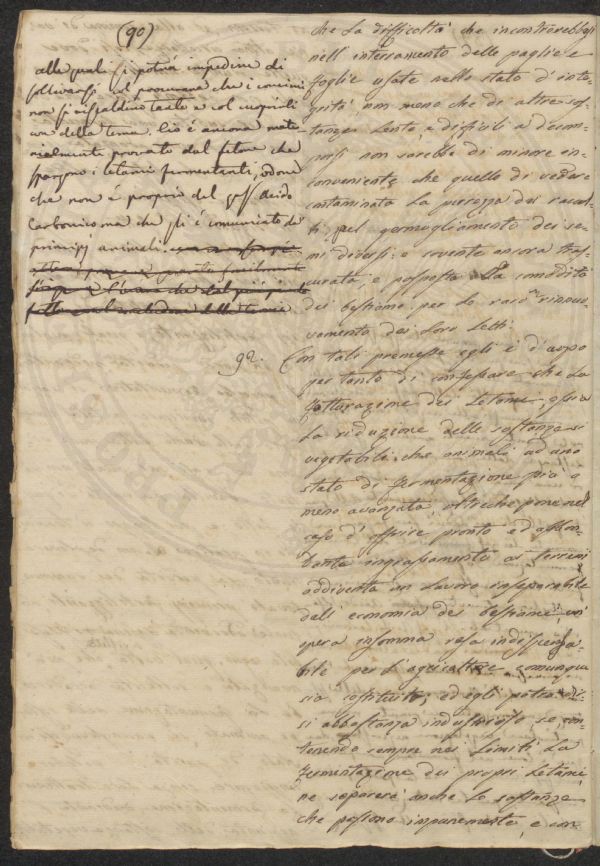 (90)
alle quali si potrà impedire di
sollevarsi col procurare che i concimi
non si riscaldino tanto e col coprirli
con della terra. Ciò è ancora mate-
rialmente provato dal fetore che
spargono i letami fermentanti, odore
che non è proprio del gas acido
Carbonico ma che gli è comunicato dai
principj animali.
che la difficoltà che incontrerebbesi
nell'interramento delle paglie e
foglie usate nello stato d'inte-
grità, non meno che di altre sos-
tanze lente e difficili a decom-
porsi non sarebbe di minore in-
conveniente che quello di vedere
contaminata la purezza dei raccol-
ti pel germogliamento dei se-
mi diversi; e sovente ancora tras-
curata e posposta la comodità
del bestiame per lo raro rinno-
vamento dei loro letti.
92. Con tali premesse egli è d'uopo
per tanto di confessare che la
fatturazione dei letami, ossia
la riduzione delle sostanze sì
vegetabili che animali ad uno
stato di fermentazione più o
meno avanzata, oltreche pone nel
caso d'offrire pronto ed abbon-
dante ingrassamento ai terreni
addiventa un lavoro inseparabile
dall'economia del bestiame, un'
opera insomma resa indispensa-
bile per l'agricoltore comunque
sia costituito; ed egli potrà dir-
si abbastanza industrioso se con-
tenendo sempre nei limiti la
fermentazione dei propri letami
ne separerà anche le sostanze
che possono impunemente, e con-